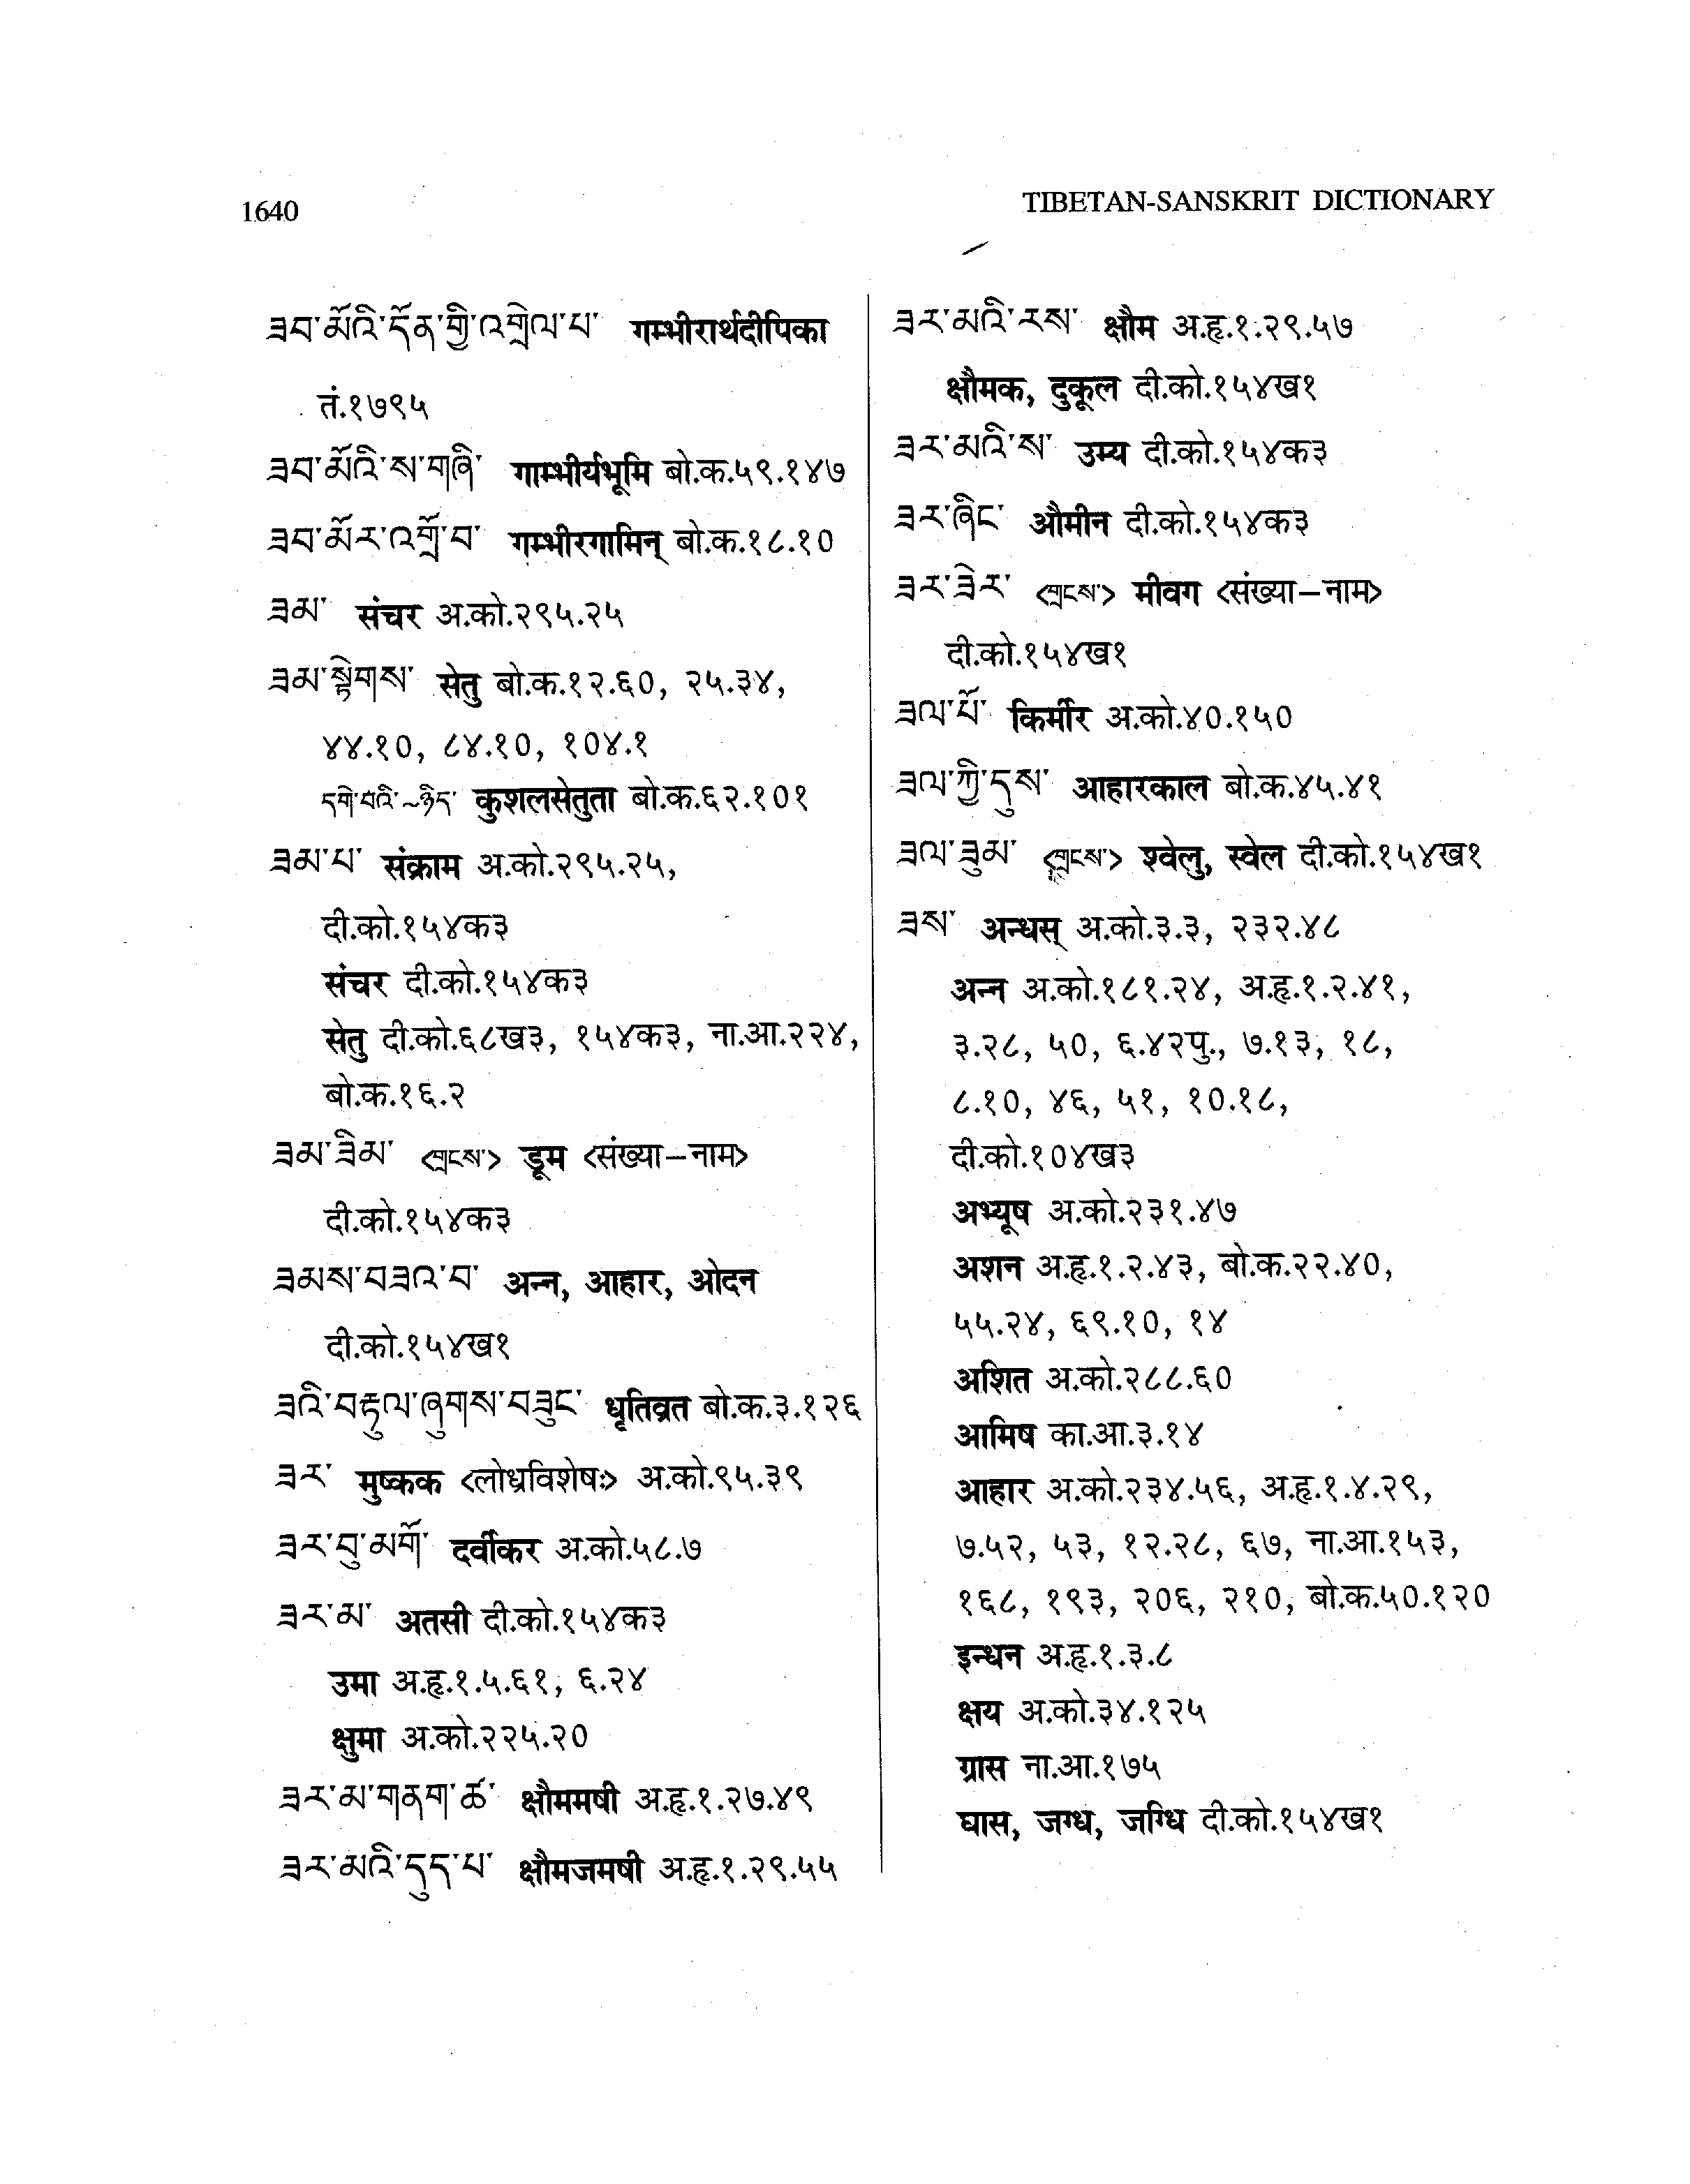 1640
TIBETAN-SANSKRIT DICTIONARY
ཟབ་མོའི་དོན་གྱི་འགྲེལ་པ་ गम्भीरार्थदीपिका
तं.१७९५
ཟབ་མོའི་ས་གཞི་ गाम्भीर्यभूमि बो.क.५९.१४७
ཟབ་མོར་འགྲོ་བ་ गम्भीरगामिन् बो.क.१८.१०
ཟམ་ संचर अ.को.२९५.२५
ཟམ་སྟེགས་ सेतु बो.क.१२.६०, २५.३४,
४४.१०, ८४.१०, १०४.१
དགེ་བའི་~ཉིད་ कुशलसेतुता बो.क.६२.१०१
ཟམ་པ་ संक्राम अ.को.२९५.२५,
दी.को.१५४क३
संचर दी.को.१५४क३
सेतु दी.को.६८ख३, १५४क३, ना.आ.२२४,
बो.क.१६.२
ཟམ་ཟིམ་ <གྲངས་> डूम <संख्या–नाम>
दी.को.१५४क३
ཟམས་བཟའ་བ་ अन्न, आहार, ओदन
दी.को.१५४ख१
ཟའི་བརྟུལ་ཞུགས་བཟུང་ धृतिव्रत बो.क.३.१२६
ཟར་ मुष्कक <लोध्रविशेषः> अ.को.९५.३९
ཟར་བུ་མགོ་ दर्वीकर अ.को.५८.७
ཟར་མ་ अतसी दी.को.१५४क३
उमा अ.हृ.१.५.६१, ६.२४
क्षुमा अ.को.२२५.२०
ཟར་མ་གནག་ཚ་ क्षौममषी अ.हृ.१.२७.४९
ཟར་མའི་དུད་པ་ क्षौमजमषी अ.हृ.१.२९.५५
ཟར་མའི་རས་ क्षौम अ.हृ.१.२९.५७
क्षौमक, दुकूल दी.को.१५४ख१
ཟར་མའི་ས་ उम्य दी.को.१५४क३
ཟར་ཞིང་ औमीन दी.को.१५४क३
ཟར་ཟེར་ <གྲངས་> मीवग <संख्या–नाम>
दी.को.१५४ख१
ཟལ་པོ་ किर्मीर अ.को.४०.१५०
ཟལ་ཀྱི་དུས་ आहारकाल बो.क.४५.४१
ཟལ་ཟུམ་ <གྲངས་> श्वेलु, स्वेल दी.को.१५४ख१
ཟས་ अन्धस् अ.को.३.३, २३२.४८
अन्न अ.को.१८१.२४, अ.हृ.१.२.४१,
३.२८, ५०, ६.४२पु., ७.१३, १८,
८.१०, ४६, ५१, १०.१८,
दी.को.१०४ख३
अभ्यूष अ.को.२३१.४७
अशन अ.हृ.१.२.४३, बो.क.२२.४०,
५५.२४, ६९.१०, १४
अशित अ.को.२८८.६०
आमिष का.आ.३.१४
आहार अ.को.२३४.५६, अ.हृ.१.४.२९,
७.५२, ५३, १२.२८, ६७, ना.आ.१५३,
१६८, १९३, २०६, २१०, बो.क.५०.१२०
इन्धन अ.हृ.१.३.८
क्षय अ.को.३४.१२५
ग्रास ना.आ.१७५
घास, जग्ध, जग्धि दी.को.१५४ख१